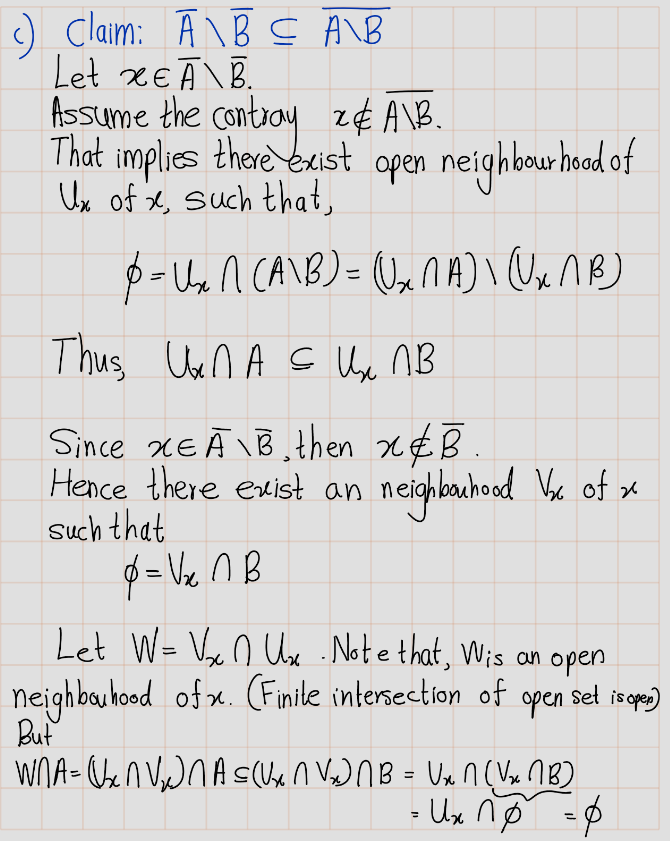 c) Claim: A̅ \ B̅ ⊆ \overline{A\B}
Let x ∈ A̅ \ B̅.
Assume the contray x ∉ \overline{A\B}.
That implies there exist open neighbourhood of
Uₓ of x, such that,
ϕ = Uₓ ∩ (A\B) = (Uₓ ∩ A) \ (Uₓ ∩ B)
Thus, Uₓ ∩ A ⊆ Uₓ ∩ B
Since x ∈ A̅ \ B̅, then x ∉ B̅.
Hence there exist an neighbouhood Vₓ of x
such that
ϕ = Vₓ ∩ B
Let W = Vₓ ∩ Uₓ. Note that, W is an open
neighbouhood of x. (Finite intersection of open set is open)
But
W∩A = (Uₓ ∩ Vₓ) ∩ A ⊆ (Uₓ ∩ Vₓ) ∩ B = Uₓ ∩ (Vₓ ∩ B)
= Uₓ ∩ ϕ = ϕ